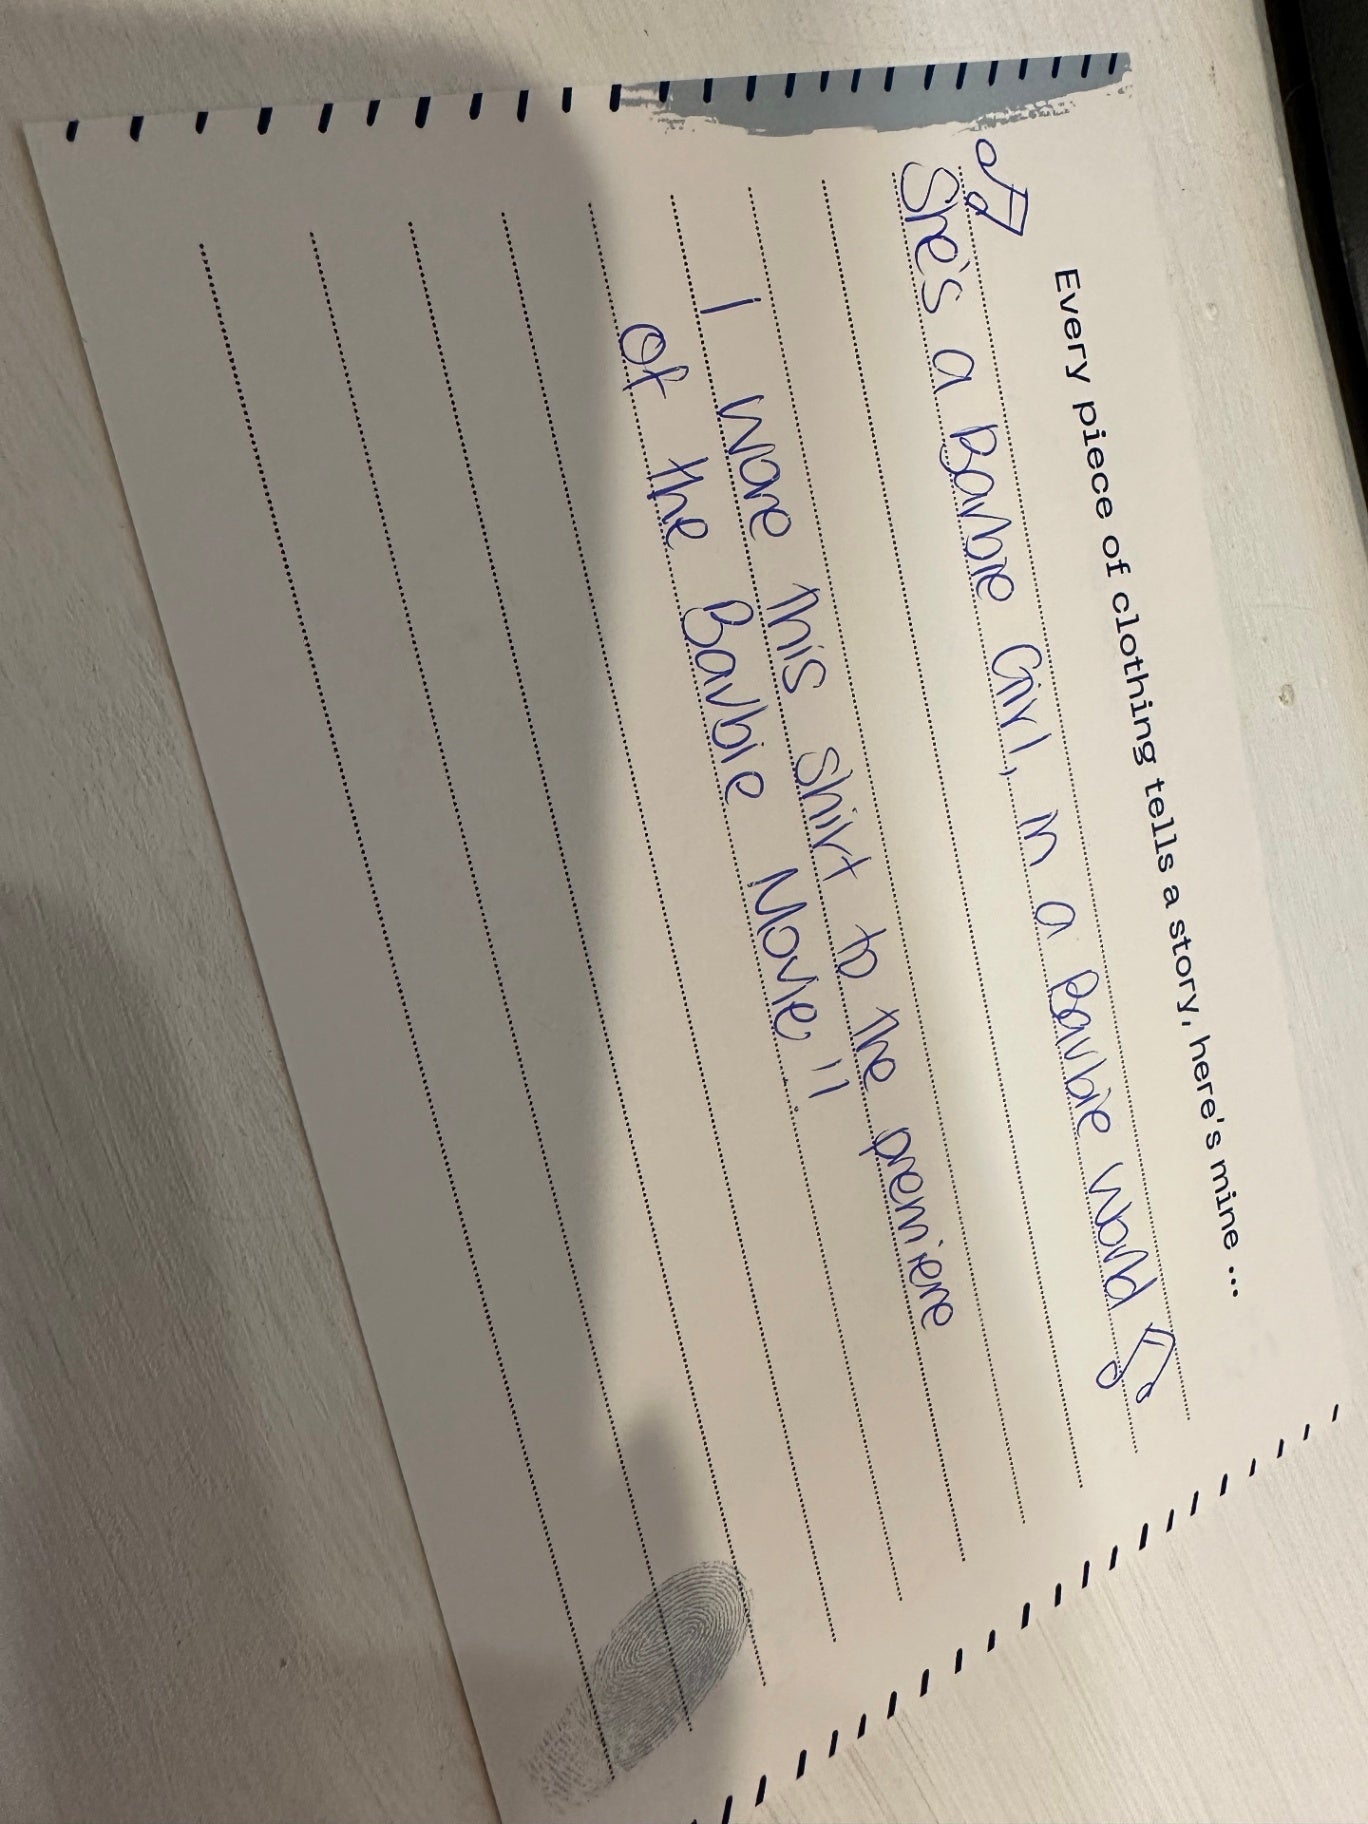 Every piece of clothing tells a story, here's mine ...
She's a Barbie Girl, in a Barbie world
I wore this shirt to the premiere
of the Barbie Movie!!